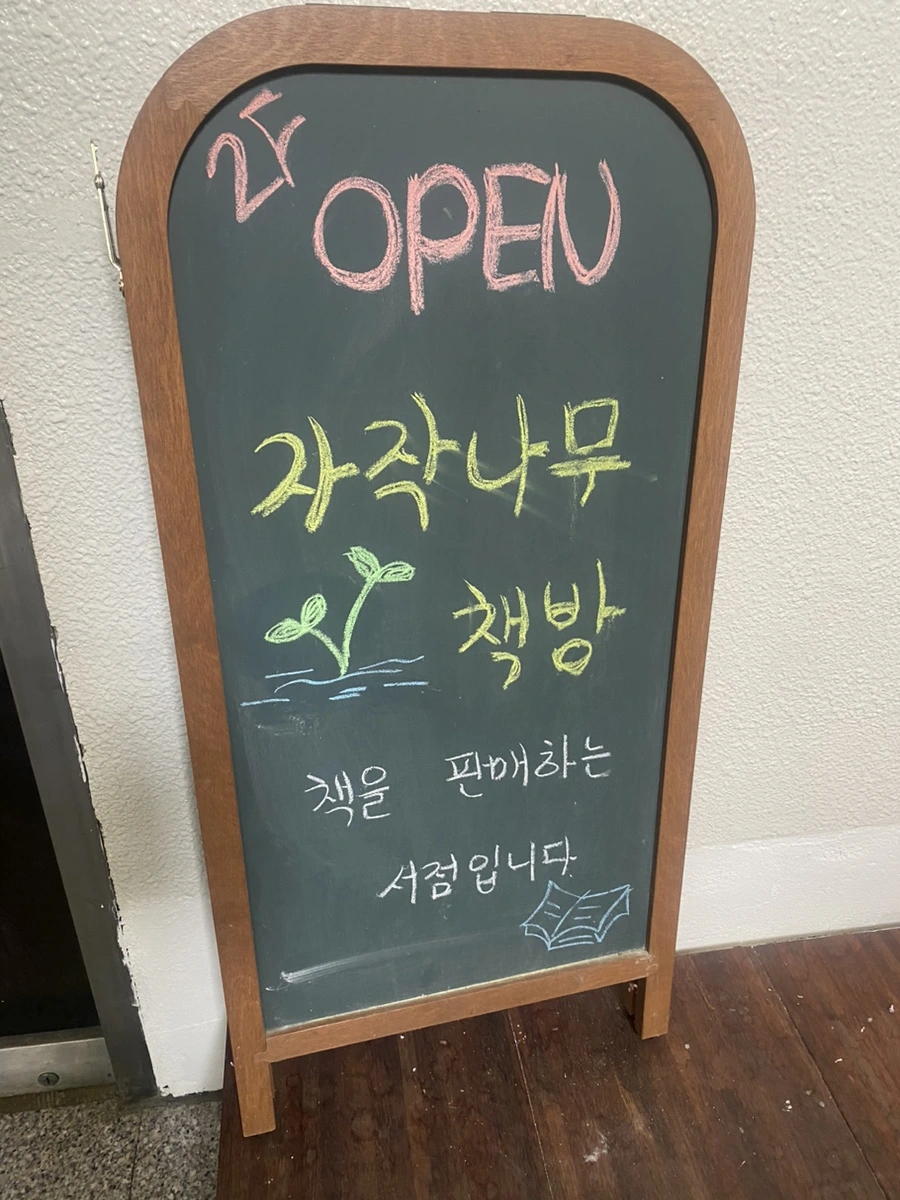 2F
OPEN
자작나무
책방
책을 판매하는
서점입니다